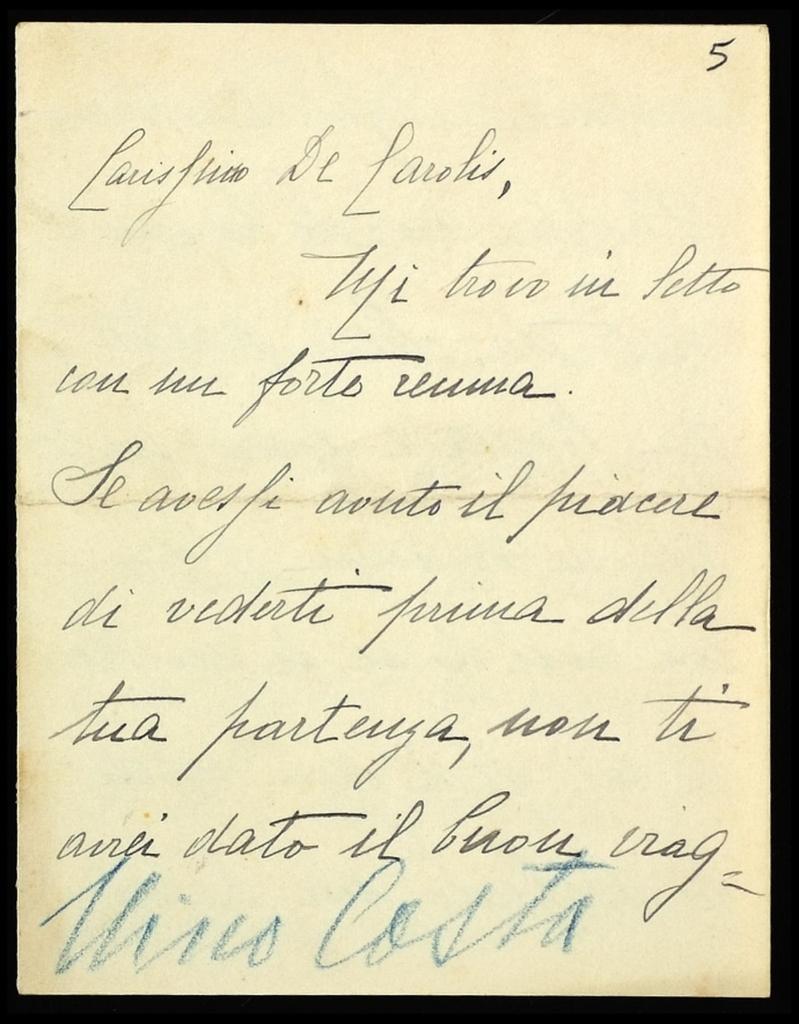 5
Carissimo De Carolis,
Mi trovo in letto
con un forte reuma.
Se avessi avuto il piacere
di vederti prima della
tua partenza, non ti
avrei dato il buon viag=
Nino Costa